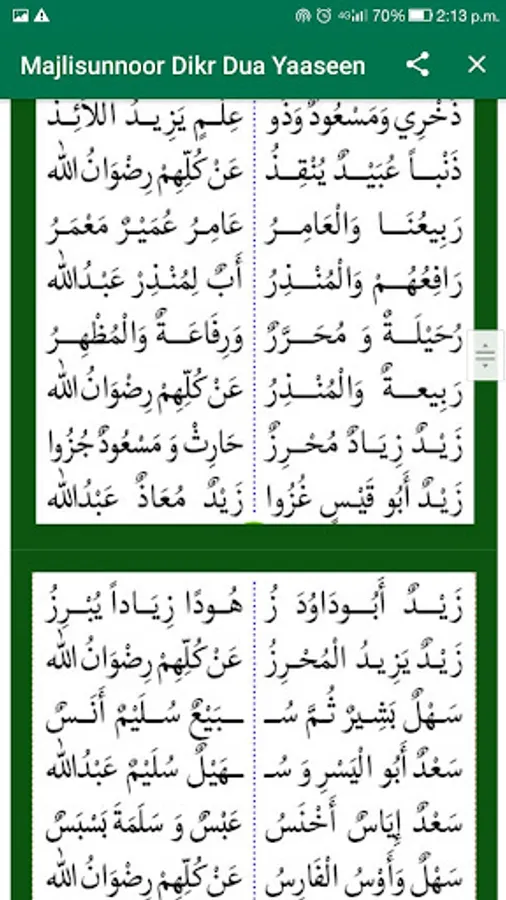 4G 70% 2:13 p.m.
Majlisunnoor Dikr Dua Yaaseen
ذُخْرِي وَمَسْعُودٌ وَذُو عِلْمٍ يَزِيدُ اللَّائِذُ
ذَنْبـاً عُبَيْـدٌ يُنْقِـذُ عَنْ كُلِّهِمْ رِضْوَانُ الله
رَبِيعُنَـا وَالْعَامِـرُ عَامِرُ عُمَيْرٌ مَعْمَرُ
رَافِعُهُـمْ وَالْمُنْـذِرُ أَبٌ لِمُنْذِرْ عَبْـدُالله
رُحَيْلَـةٌ وَ مُحَـرَّرٌ وَرِفَاعَـةٌ وَالْمُظْهِـرُ
رَبِيعـةٌ وَالْمُنْـذِرُ عَنْ كُلِّهِمْ رِضْوَانُ الله
زَيْـدٌ زِيَـادٌ مُحْـرِزٌ حَارِثْ وَ مَسْعُودٌ جُزُوا
زَيْـدٌ أَبُو قَيْـسٍ غُزُوا زَيْدٌ مُعَاذٌ عَبْدُالله
زَيْـدٌ أَبُـودَاوُدَ زُ هُـودًا زِيَـاداً يُبْـرِزُ
زَيْدٌ يَزِيدُ الْمُحْرِزُ عَنْ كُلِّهِمْ رِضْوَانُ الله
سَهْلٌ بَشِيرٌ ثُمَّ سُـ ـبَيْعٌ سُـلَيْمٌ أَنَـسٌ
سَعْدٌ أَبُو الْيَسْرِ وَ سُـ ـهَيْلٌ سُلَيْمٌ عَبْدُالله
سَعْدٌ إِيَاسٌ أَخْنَسُ عَبْسٌ وَ سَلَمَةَ بَسْبَسٌ
سَهْلٌ وَأَوْسُ الْفَارِسُ عَنْ كُلِّهِمْ رِضْوَانُ الله